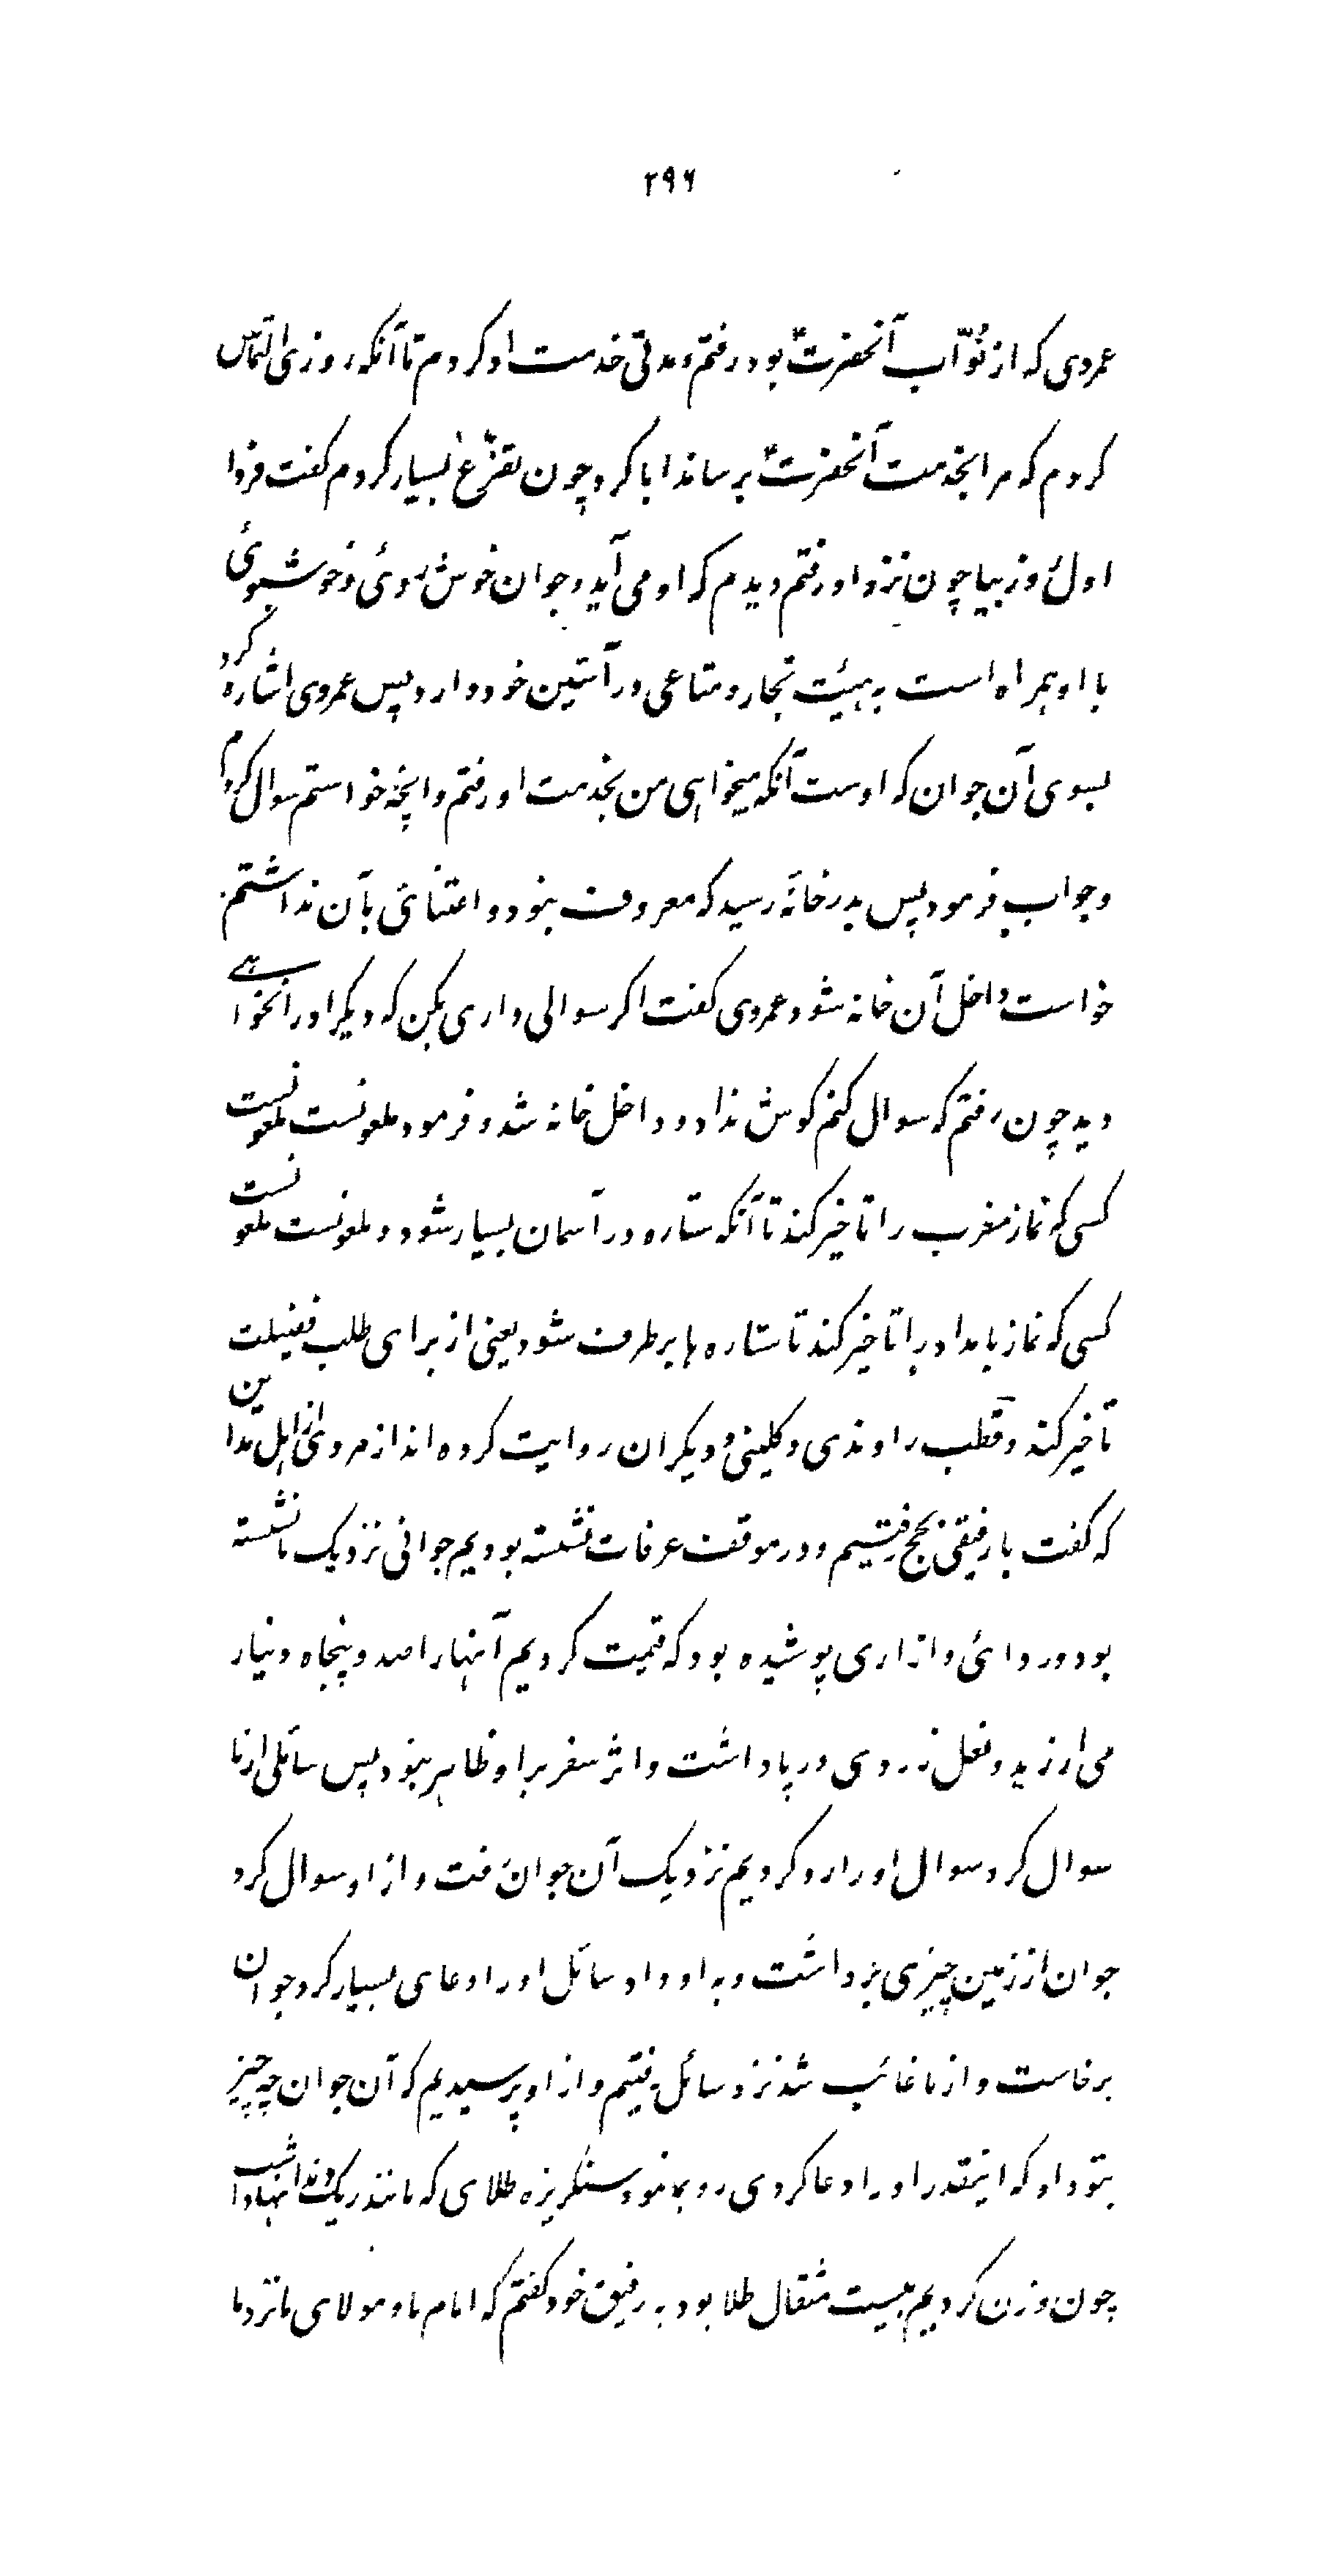 ۲۹۶
عمروی که از نُوّاب آنحضرتؑ بود رفتم و مدتی خدمت او کردم تا آنکه روزی التماس
کردم که مرا بخدمت آنحضرتؑ برساند ابا کرد چون تضرّع بسیار کردم گفت فردا
اول روز بیا چون نزد او رفتم دیدم که او می آید و جوان خوش روئی و خوشبوئی
با او همراه است به هیئت تجار و متاعی در آستین خود دارد پس عمروی اشاره کرد
بسوی آن جوان که اوست آنکه میخواهی من بخدمت او رفتم و آنچه خواستم سوال کردم
و جواب فرمود پس بدر خانهٔ رسید که معروف نبود و اعتنائی بآن نداشتم
خواست داخل آن خانه شود عمروی گفت اگر سوالی داری بکن که دیگر او را نخواهی
دید چون رفتم که سوال کنم گوش نداد و داخل خانه شد و فرمود ملعونست ملعونست
کسی که نماز مغرب را تاخیر کند تا آنکه ستاره در آسمان بسیار شود و ملعونست ملعونست
کسی که نماز بامداد را تاخیر کند تا ستاره ها برطرف شود یعنی از برای طلب فضیلت
تاخیر کند و قطب راوندی و کلینی و دیگران روایت کرده اند از مردی از اهل مداین
که گفت با رفیقی بحج رفتیم و در موقف عرفات نشسته بودیم جوانی نزدیک ما نشسته
بود و ردائی و ازاری پوشیده بود که قیمت کردیم آنها را صد و پنجاه دینار
می ارزید و نعل زردی در پا داشت و اثر سفر بر او ظاهر نبود پس سائلی از ما
سوال کرد سوال او را رد کردیم نزدیک آن جوان رفت و از او سوال کرد
جوان از زمین چیزی برداشت و به او داد سائل او را دعای بسیار کرد جوان
برخاست و از ما غائب شد نزد سائل رفتیم و از او پرسیدیم که آن جوان چه چیز
بتو داد که اینقدر او را دعا کردی رو بما نمود سنگریزه طلای که مانند ریک دندانها داشت
چون وزن کردیم بیست مثقال طلا بود به رفیق خود گفتم که امام ما و مولای ما نزد ما